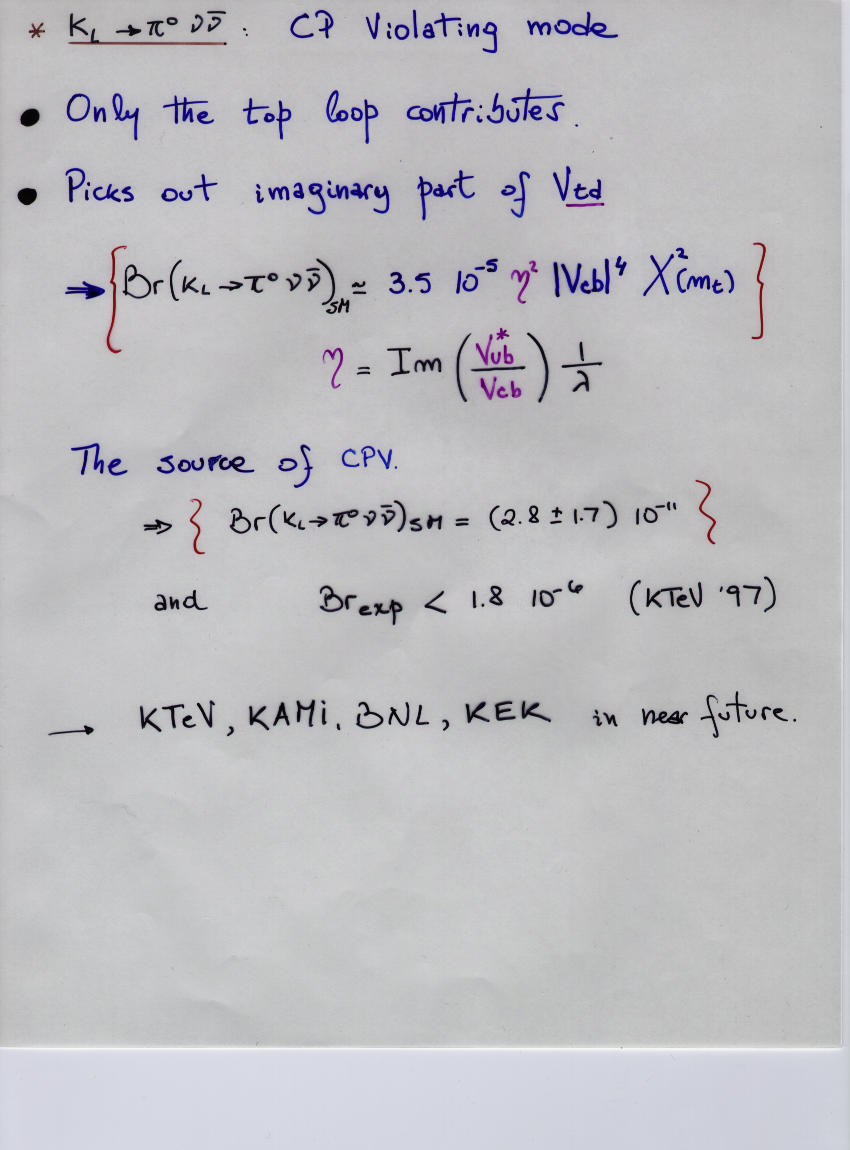 * K_L → π⁰ ν ν̄ : CP Violating mode
• Only the top loop contributes.
• Picks out imaginary part of Vtd
⇒ { Br(K_L → π⁰ ν ν̄)_SM ≃ 3.5 10⁻⁵ η² |Vcb|⁴ X²(m_t) }
η = Im (Vub*/Vcb) 1/λ
The source of CPV.
⇒ { Br(K_L → π⁰ ν ν̄)_SM = (2.8 ± 1.7) 10⁻¹¹ }
and Br_exp < 1.8 10⁻⁶ (KTeV '97)
→ KTeV, KAMi, BNL, KEK in near future.